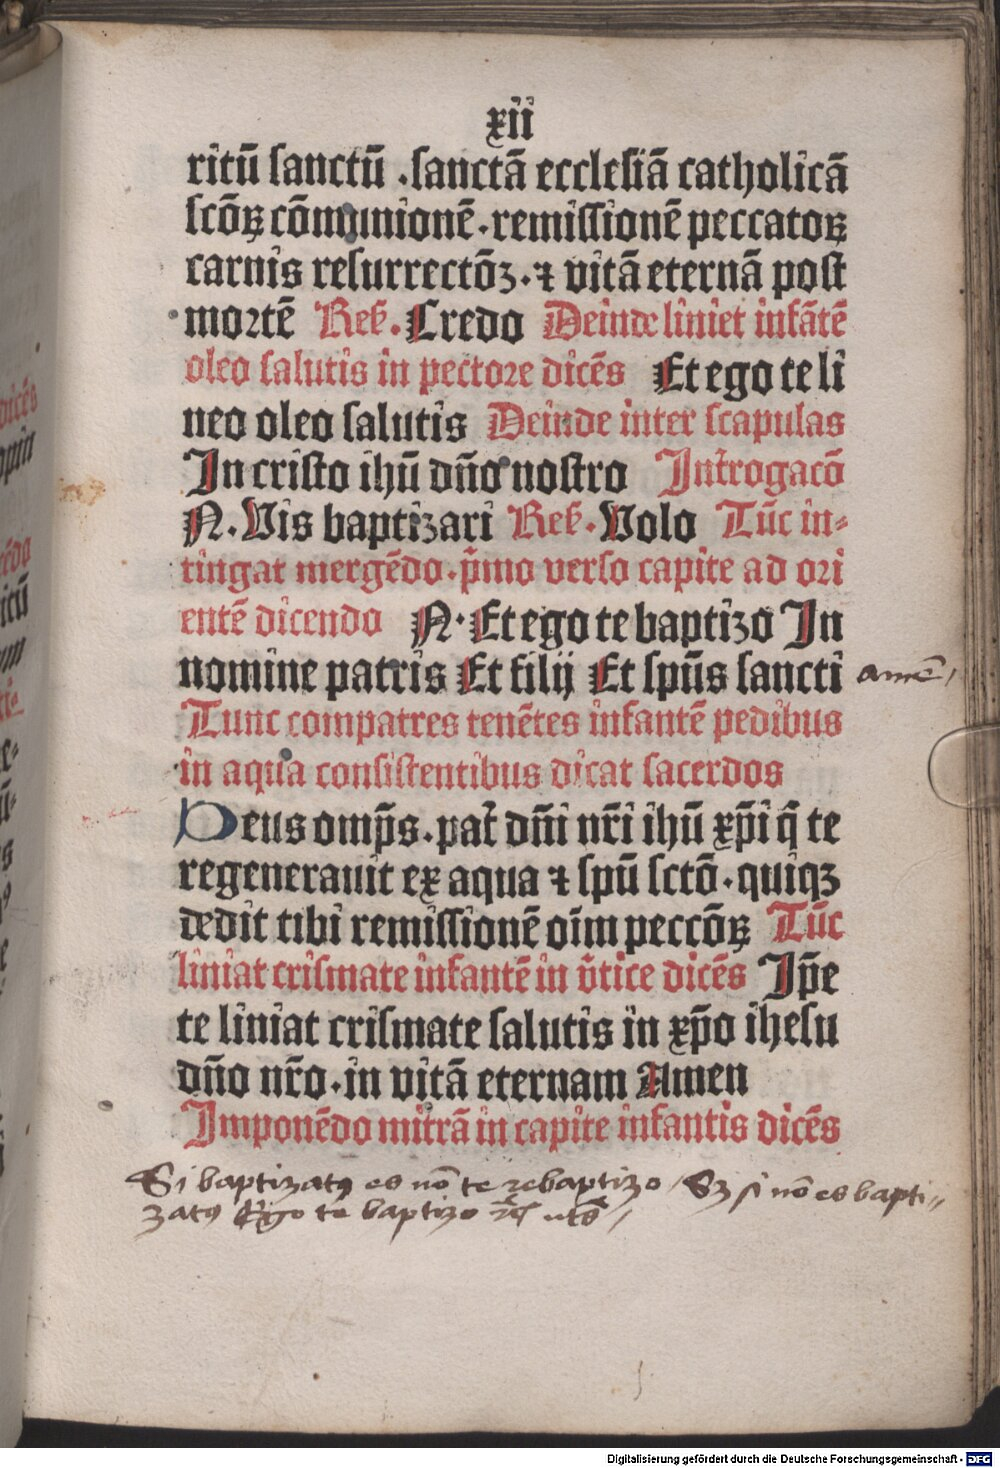 xii
ritū sanctū . sanctā ecclesiā catholicā
scōꝝ cōmunionē . remissionē peccatoꝝ
carnis resurrectōꝫ . ⁊ vitā eternā post
mortē Rek̄ . Credo Deinde liniet infātē
oleo salutis in pectore dicēs Et ego te li
neo oleo salutis Deinde inter scapulas
In cristo ihū dn̄o nostro Int̄rogacō
N . Vis baptizari Rek̄ . Volo Tūc in-
tingat mergēdo . p̄mo verso capite ad ori
entē dicendo N . Et ego te baptizo In
nomine patris Et filij Et spūs sancti
amē /
Tunc compatres tenētes infantē pedibus
in aqua consistentibus dicat sacerdos
Deus omp̄s . pat̄ dn̄i nr̄i ihū xp̄i q̄ te
regenerauit ex aqua ⁊ spū sctō . quiqꝫ
dedit tibi remissionē oīm peccōꝝ Tūc
liniat crismate infantē in v̄tice dicēs Ip̄e
te liniat crismate salutis in xp̄o ihesu
dn̄o nr̄o . in vitā eternam Amen
Imponēdo mitrā in capite infantis dicēs
Si baptizatꝰ es nō te rebaptizo / Sꝫ si nō es bapti//
zatꝰ Ego te baptizo ⁊c̄ uts̄ /
dicēs
Digitalisierung gefördert durch die Deutsche Forschungsgemeinschaft - DFG